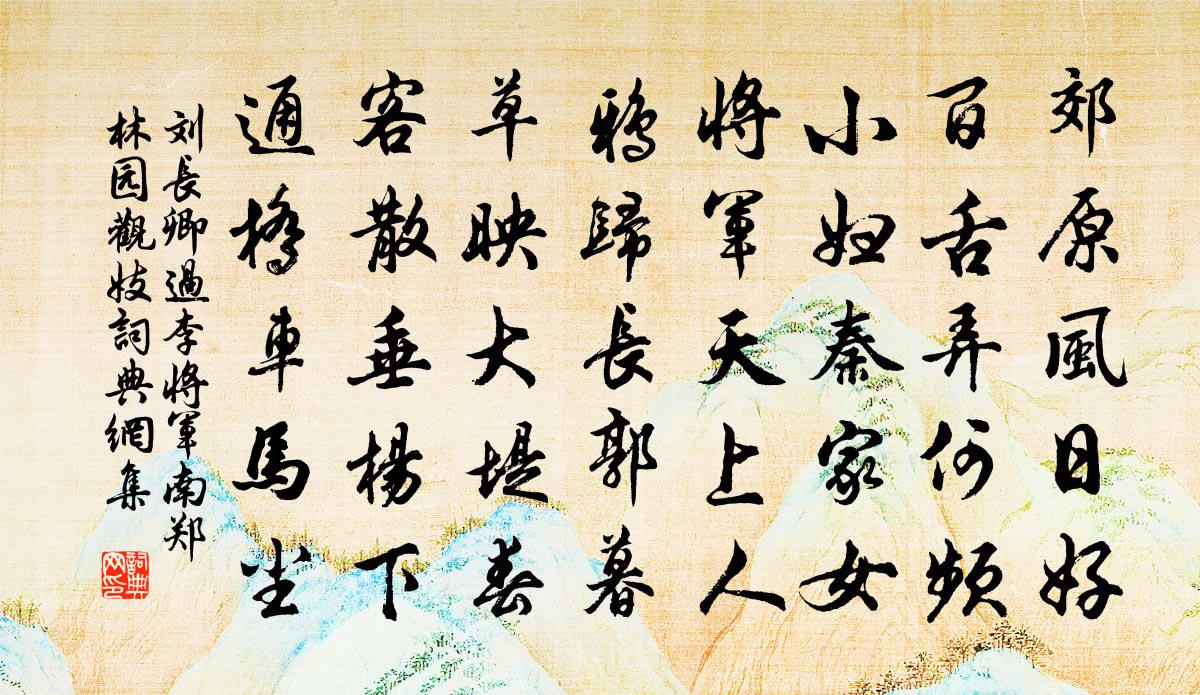 郊原風日好
百舌弄何频
小妇秦家女
將軍天上人
鴉歸長郭暮
草映大堤春
客散垂楊下
通橋車馬尘
刘長卿過李將軍南郑
林园觀妓詞典網集
詞典网印